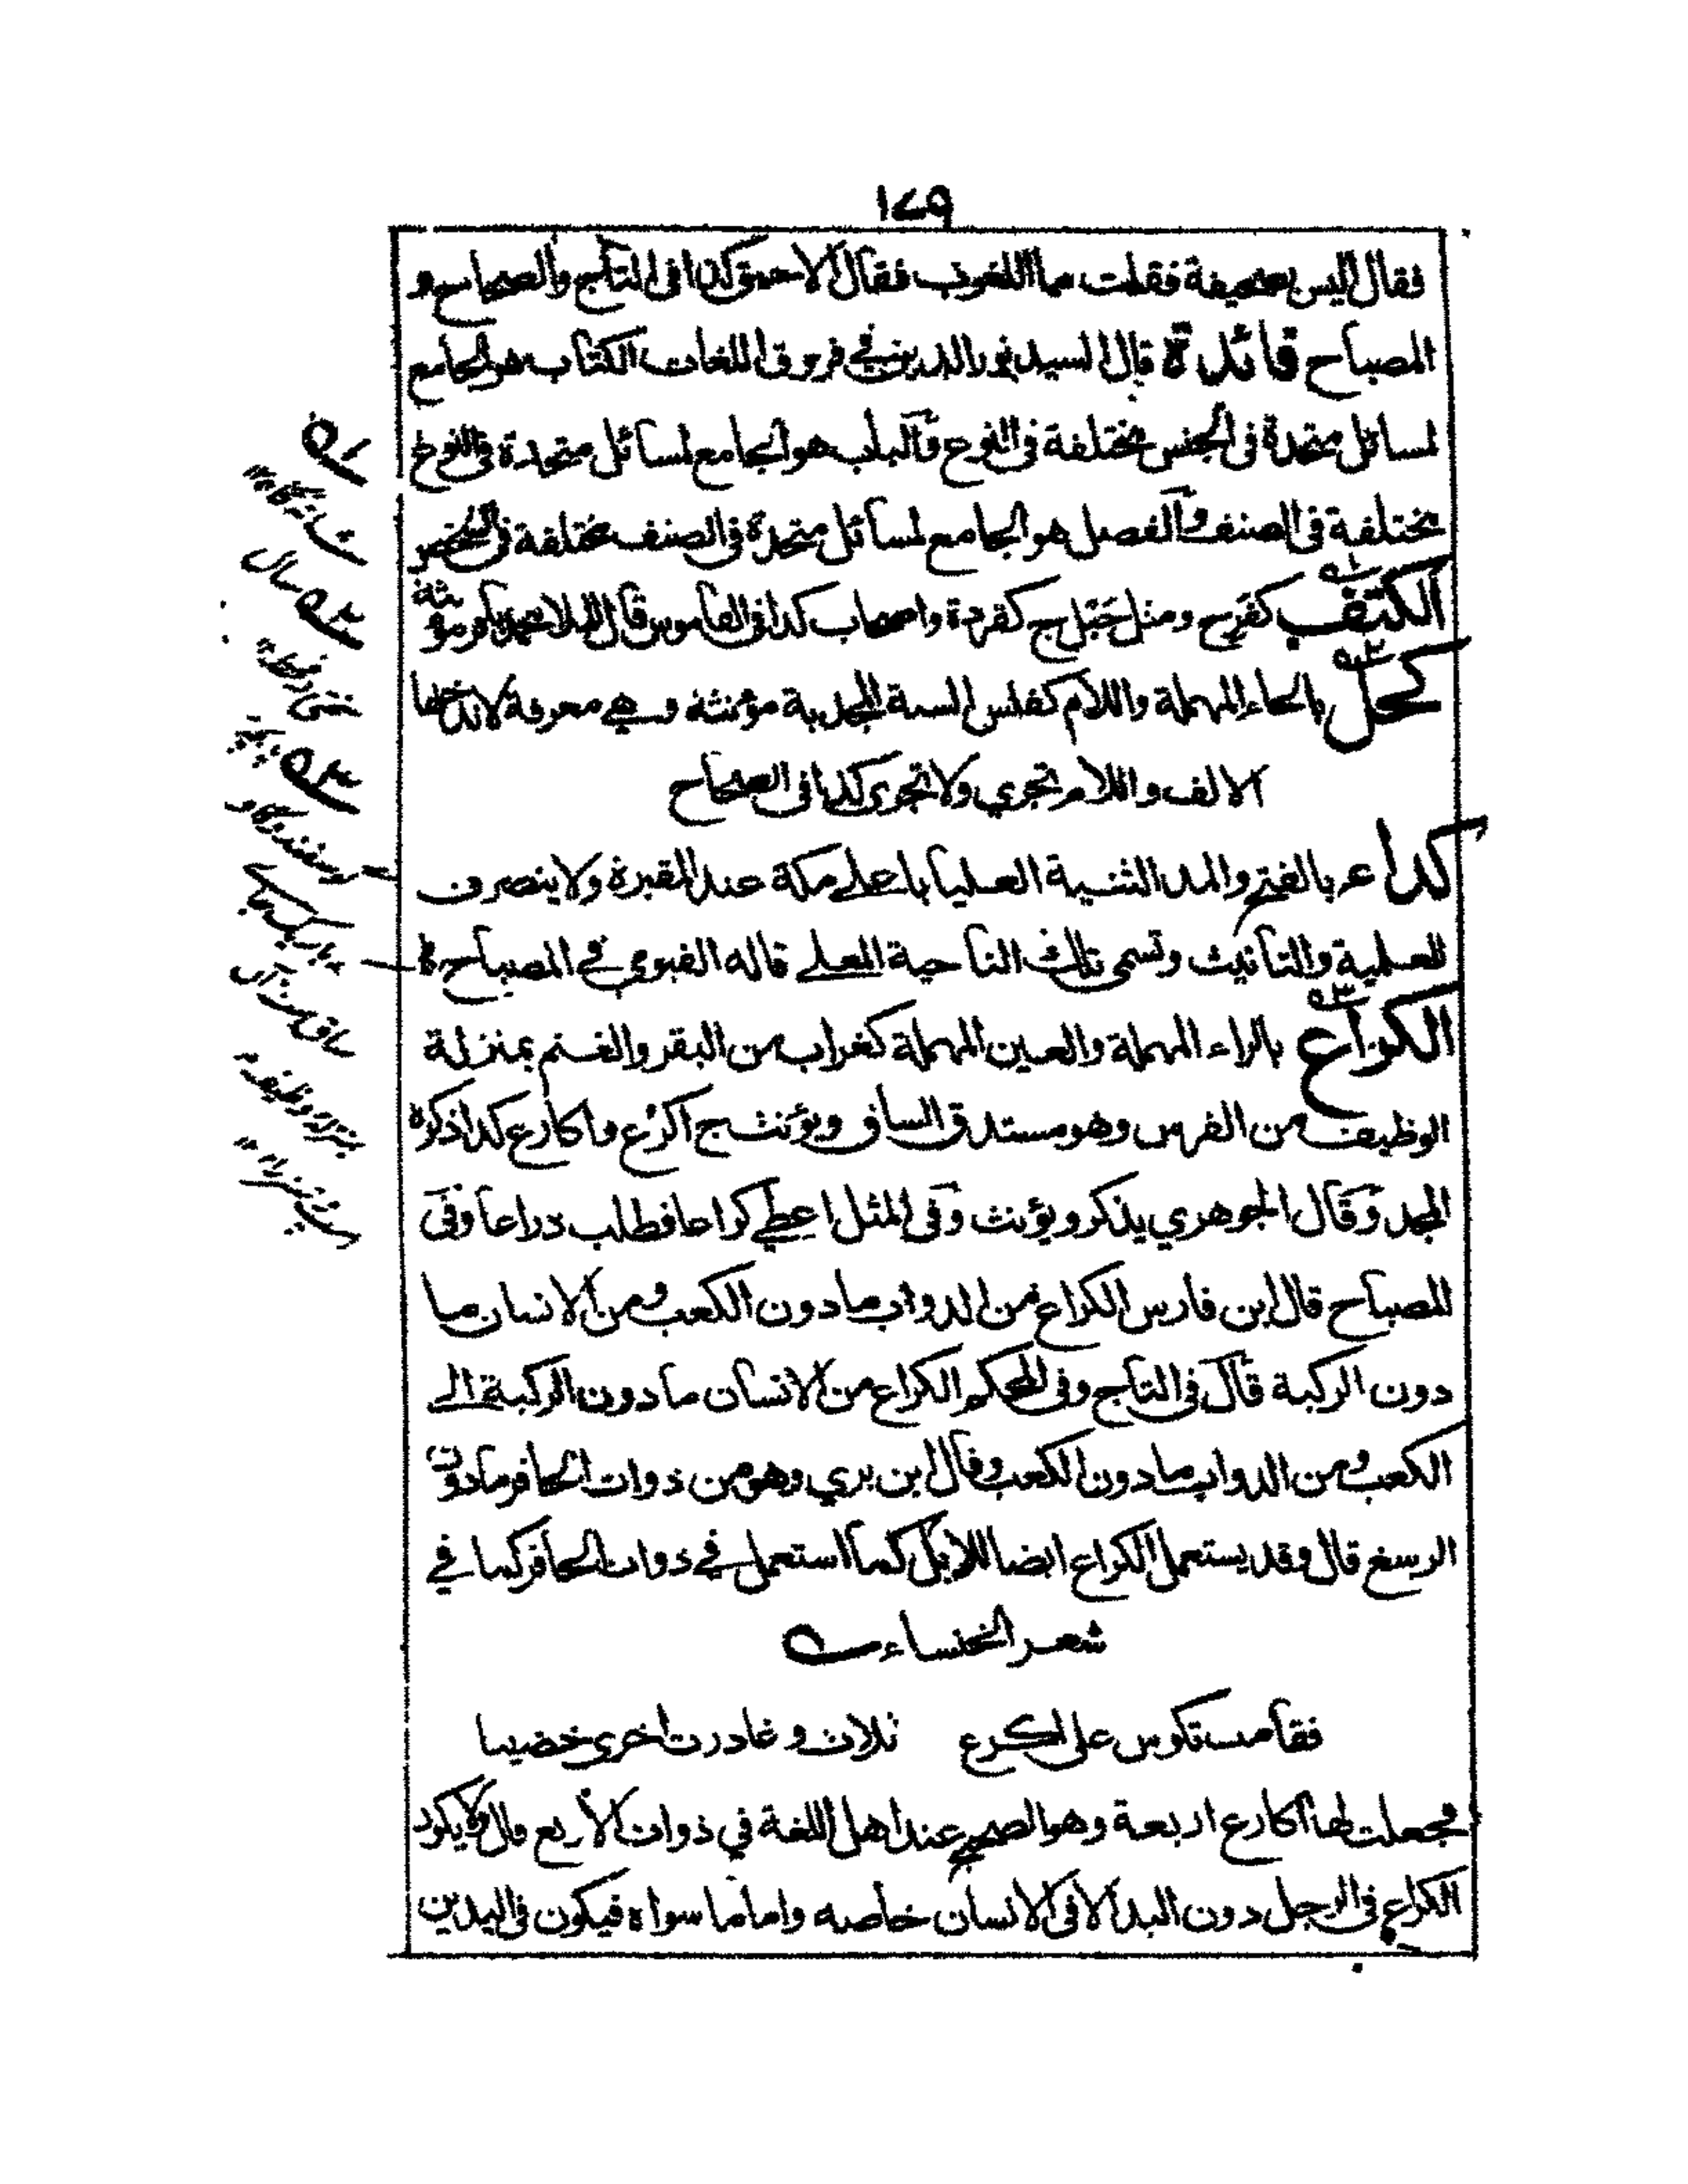 ١٧٩
فقال اليس بصحيفة فقلت ما اللغوب فقال الاحمق كذا فى التاج والصحاح و
المصباح فائدة قال السيد نور الدين في فروق اللغات الكتاب هو الجامع
لمسائل متحدة فى الجنس مختلفة فى النوع والباب هو الجامع لمسائل متحدة فى النوع
مختلفة فى الصنف والفصل هو الجامع لمسائل متحدة فى الصنف مختلفة فى
الكتف كفرح ومثل حبل ج كقردة واصحاب كذا فى القاموس قال مؤنثة
كحل بالحاء المهملة واللام كفلس السنة المجدبة مؤنثة وهي معرفة لا تدخلها
الالف واللام تجري ولا تجرى كذا فى الصحاح
كداء بالفتح والمد الثنية العليا باعلى مكة عند المقبرة ولا ينصرف
للعلمية والتانيث وتسمى تلك الناحية المعلى قاله الفيومي في المصباح
الكراع بالراء المهملة والعين المهملة كغراب من البقر والغنم بمنزلة
الوظيف من الفرس وهو مستدق الساق ويؤنث ج اكرع واكارع كذا ذكره
المجد وقال الجوهري يذكر ويؤنث وفى المثل اعطي كراعا فطلب ذراعا وفى
المصباح قال ابن فارس الكراع من الدواب ما دون الكعب ومن الانسان ما
دون الركبة قال فى التاج وفى المحكم الكراع من الانسان ما دون الركبة الى
الكعب ومن الدواب ما دون الكعب وقال ابن بري وهو من ذوات الحافر ما دون
الرسغ قال وقد يستعمل الكراع ايضا للابل كما استعمل في ذوات الحافر كما في
شعر الخنساء
فقامت تكوس على اكرع ثلاث وغادرت اخرى خضيبا
فجعلت لها اكارع اربعة وهو الصحيح عند اهل اللغة في ذوات الاربع قال ولا يكون
الكراع فى الرجل دون اليد الا فى الانسان خاصه واما ما سواه فيكون فى اليدين